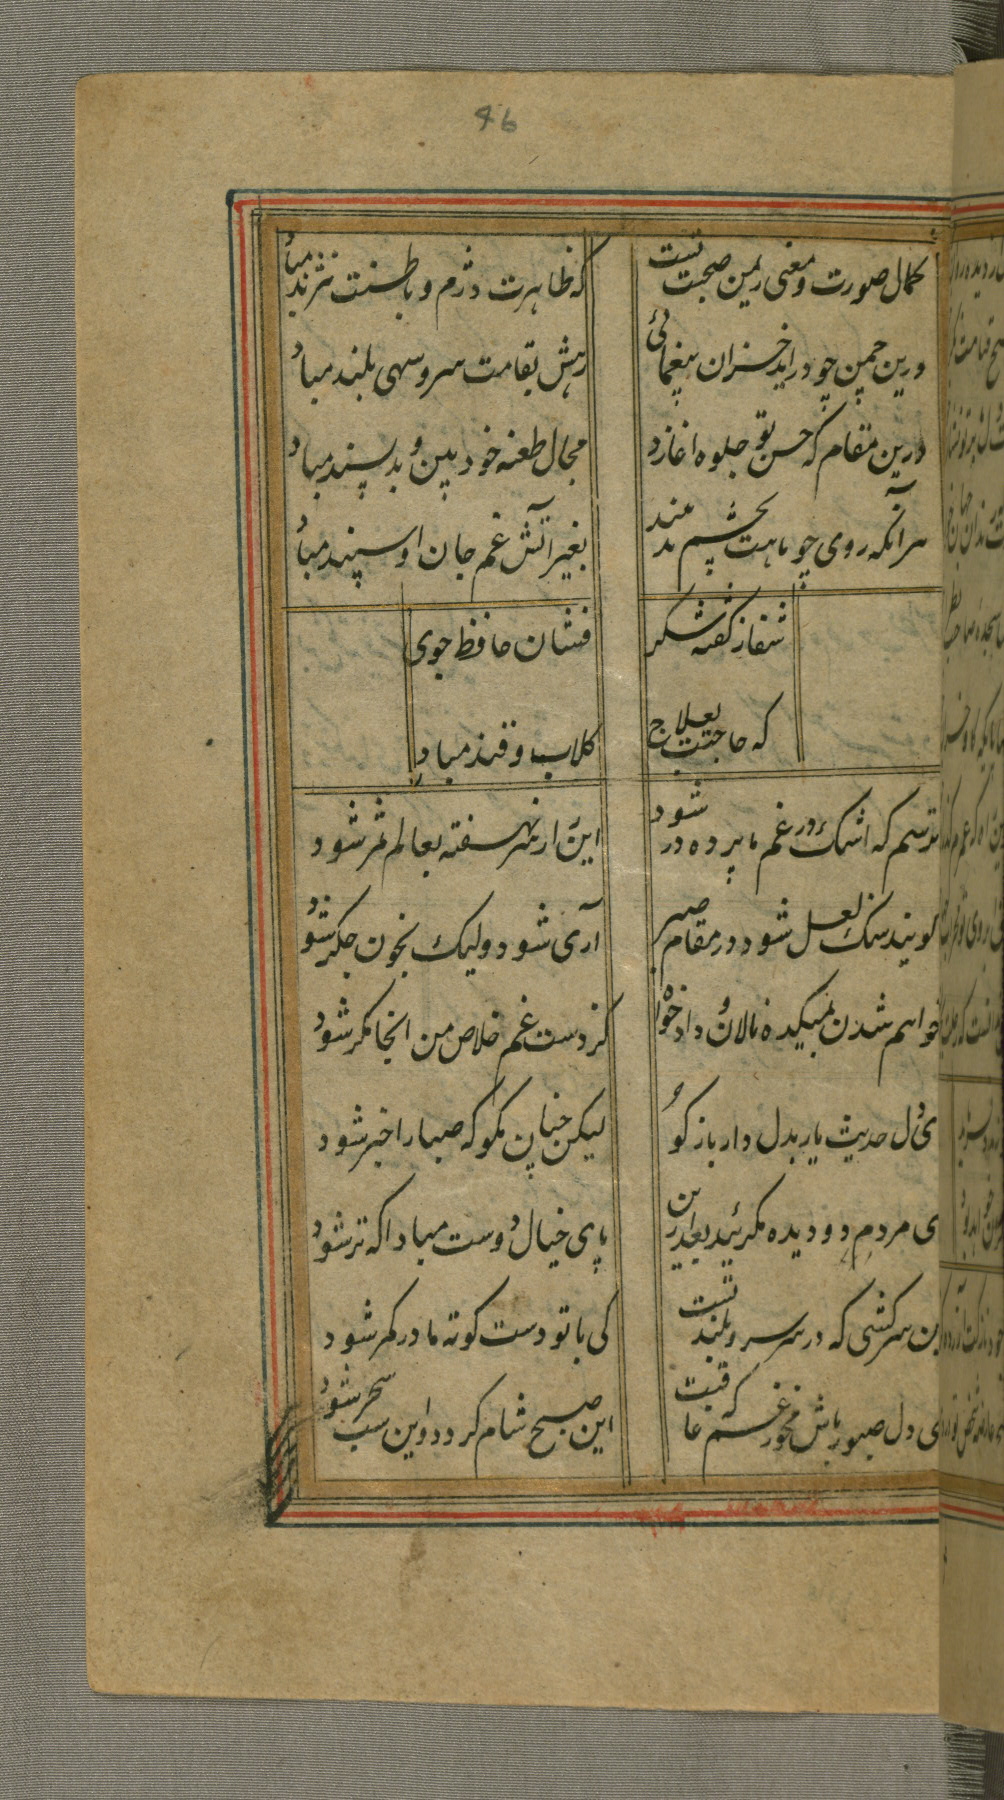 46
کمال صورت و معنی ز یمن صحت تست
که ظاهرت دژم و باطنت نژند مباد
درین چمن چو درآید خزان یغمائی
رهش بقامت سرو سهی بلند مباد
درین مقام که حسن تو جلوه اغازد
مجال طعنه خود بین و بد پسند مباد
هر آنکه روی چو ماهت بچشم بد بیند
بغیر آتش غم جان او سپند مباد
شفا ز گفته شکر
فشان حافظ جوی
که حاجتت بعلاج
کلاب و قند مباد
ترسم که اشک در غم ما پرده در شود
این راز سر بمهر سفته بعالم ثمر شود
کویند سنک لعل شود در مقام صبر
آری شود ولیک بخون جکر شود
خواهم شدن بمیکده نالان و داد خواه
کز دست غم خلاص من انجا مکر شود
ای دل حدیث یار بدل دار باز کو
لیکن چنان مکو که صبا را خبر شود
ای مردم دو دیده مکرئید بعد ازین
پای خیال دوست مبادا که تر شود
این سرکشی که در سر سرو بلند تست
کی با تو دست کوته ما در کمر شود
ای دل صبور باش مخور غم که عاقبت
این صبح شام کردد و این شب سحر شود